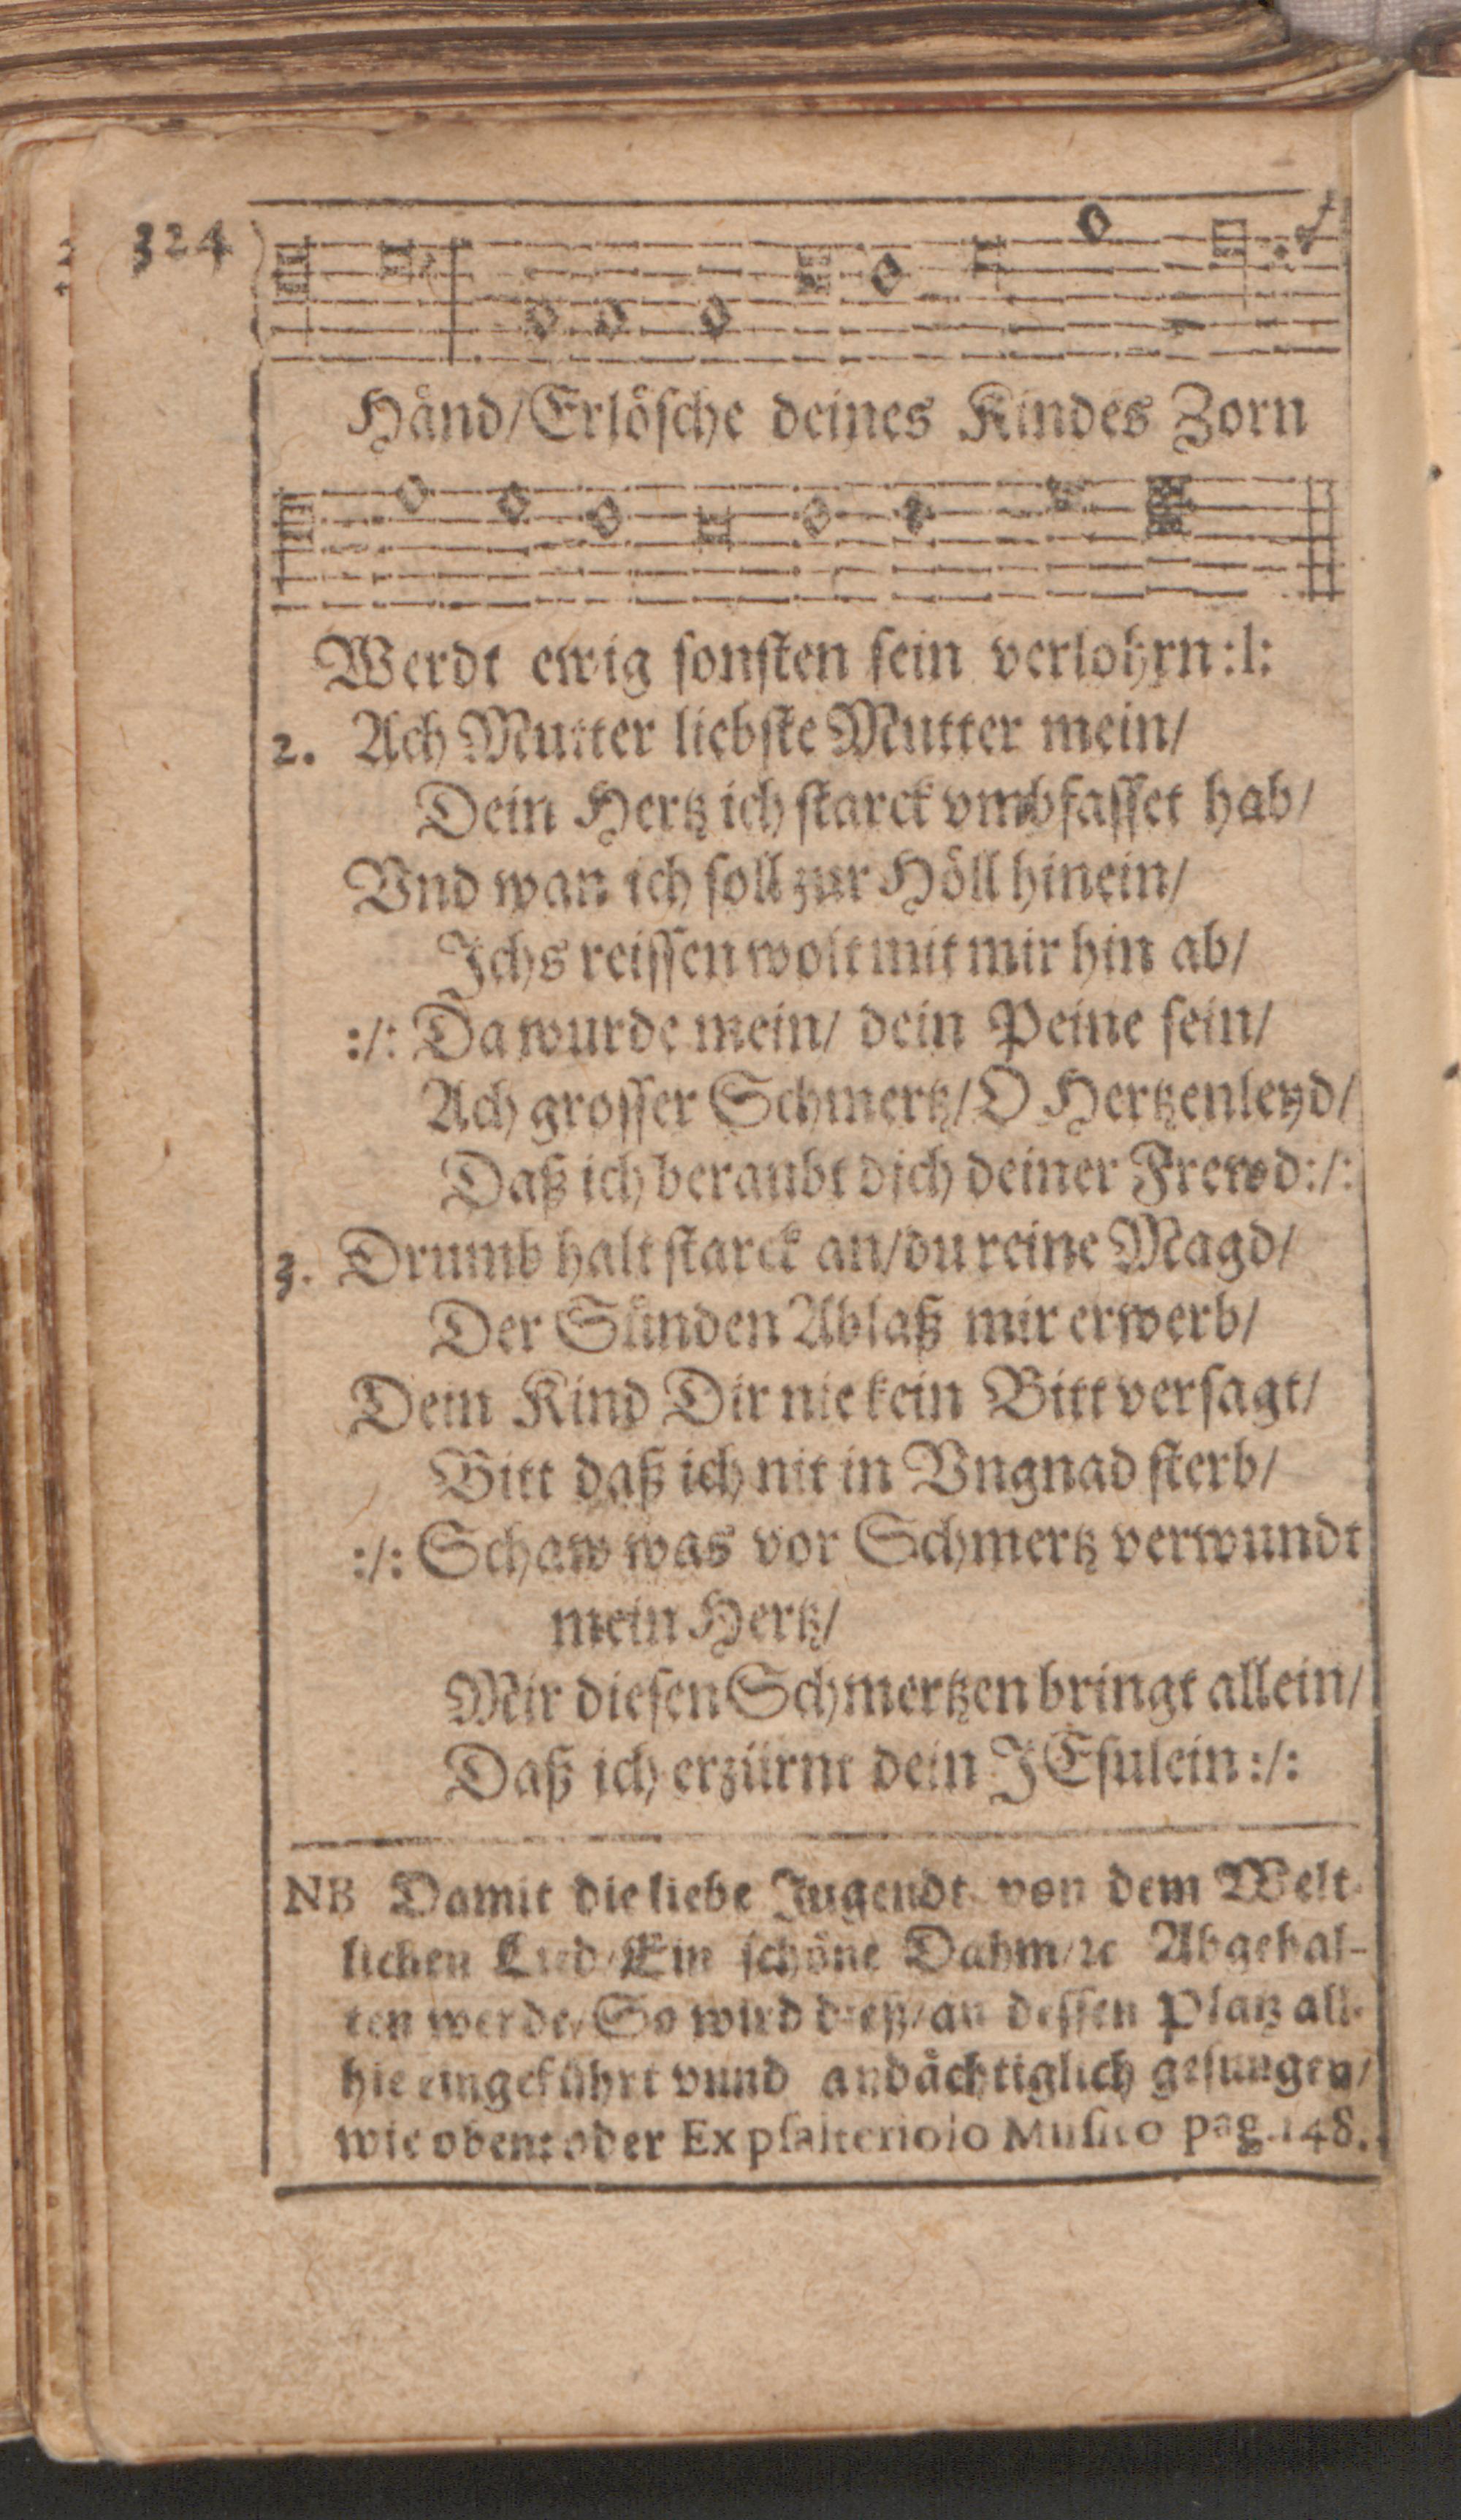 324
Händ/Erlösche deines Kindes Zorn
Werdt ewig sonsten sein verlohrn:l:
2. Ach Mutter liebste Mutter mein/
Dein Hertz ich starck vmbfasset hab/
Vnd wan ich soll zur Höll hinein/
Ichs reissen wolt mit mir hin ab/
:/: Da wurde mein/ dein Peine sein/
Ach grosser Schmertz/O Hertzenleyd/
Daß ich beraubt dich deiner Frewd:/:
3. Drumb halt starck an/du reine Magd/
Der Sünden Ablaß mir erwerb/
Dein Kind Dir nie kein Bitt versagt/
Bitt daß ich nit in Vngnad sterb/
:/: Schaw was vor Schmertz verwundt
mein Hertz/
Mir diesen Schmertzen bringt allein/
Daß ich erzürnt dein JEsulein:/:
NB Damit die liebe Jugendt von dem Welt-
lichen Lied/Ein schöne Dahm/ꝛc Abgehal-
ten werde/So wird dieß/an dessen Platz all-
hie eingeführt vnnd andächtiglich gesungen/
wie oben: oder Ex psalteriolo Musico pag. 148.